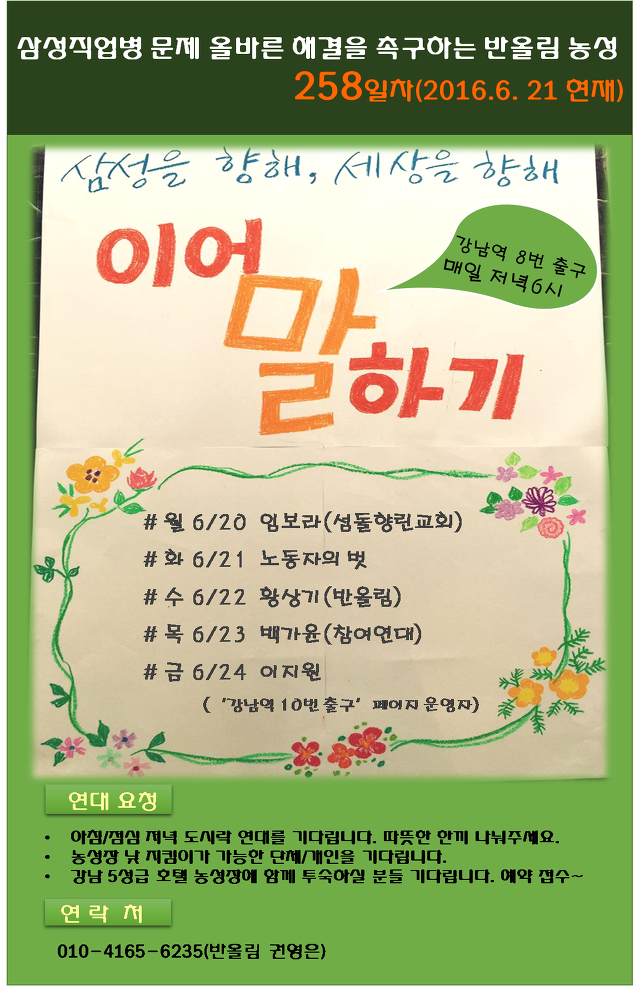 삼성직업병 문제 올바른 해결을 촉구하는 반올림 농성
258일차(2016.6. 21 현재)
삼성을 향해, 세상을 향해
이어
말
하기
강남역 8번 출구
매일 저녁6시
# 월 6/20 임보라(섬돌향린교회)
# 화 6/21 노동자의 벗
# 수 6/22 황상기(반올림)
# 목 6/23 백가윤(참여연대)
# 금 6/24 이지원
( '강남역 10번 출구' 페이지 운영자)
연대 요청
• 아침/점심 저녁 도시락 연대를 기다립니다. 따뜻한 한끼 나눠주세요.
• 농성장 낮 지킴이가 가능한 단체/개인을 기다립니다.
• 강남 5성급 호텔 농성장에 함께 투숙하실 분들 기다립니다. 예약 접수~
연 락 처
010-4165-6235(반올림 권영은)